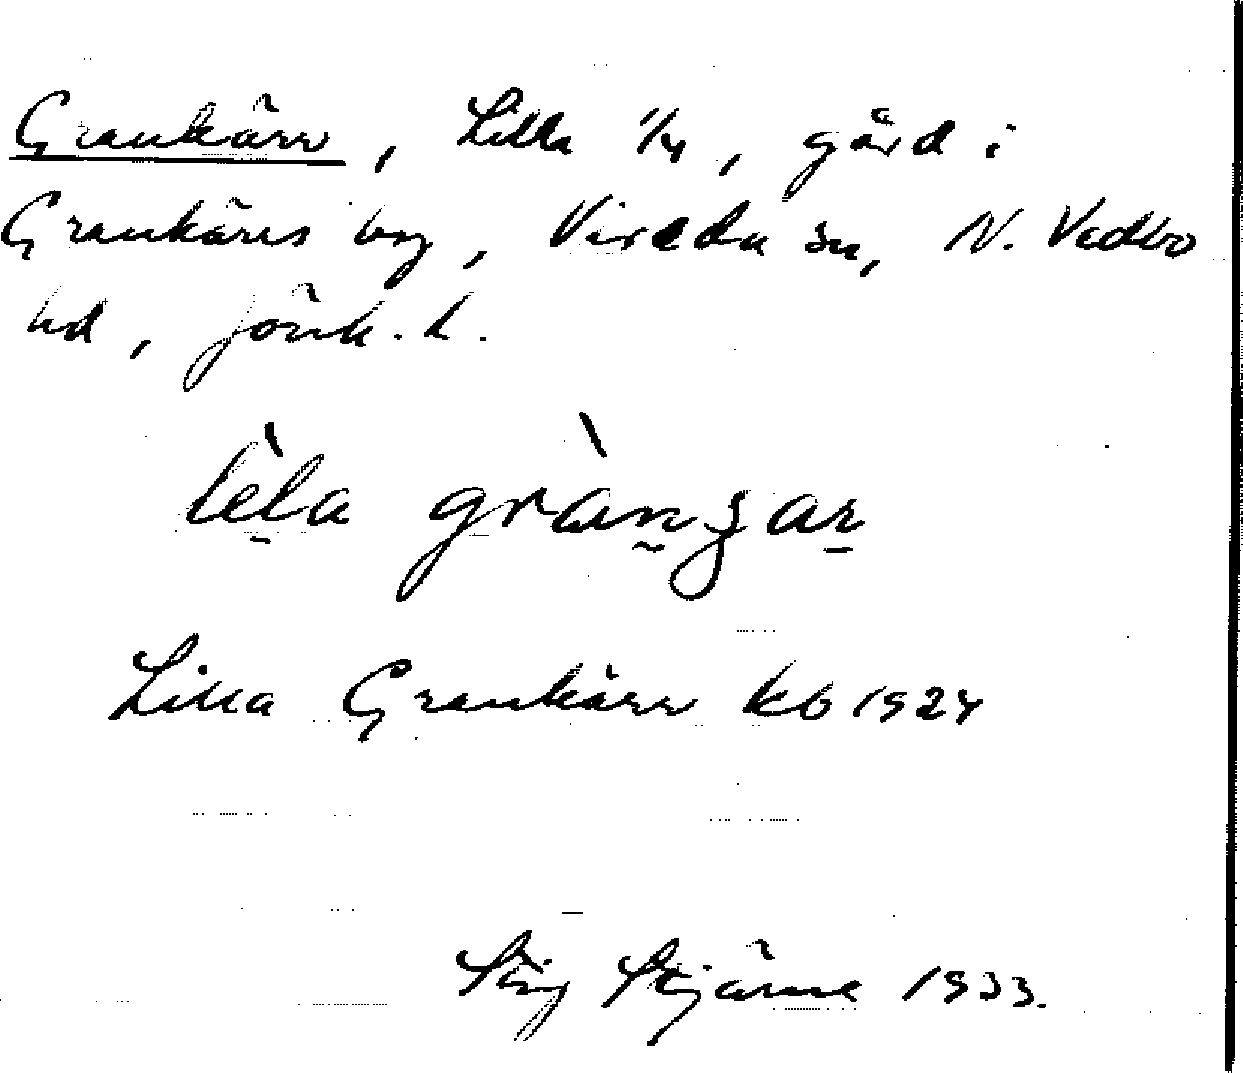 Grankärr, Lilla 1/4, gård i
Grankärrs by, Vireda sn, N. Vedbo
hd, Jönk. l.
lèla grànʒar
Lilla Grankärr kb 1924
Stig Stjärne 1933.